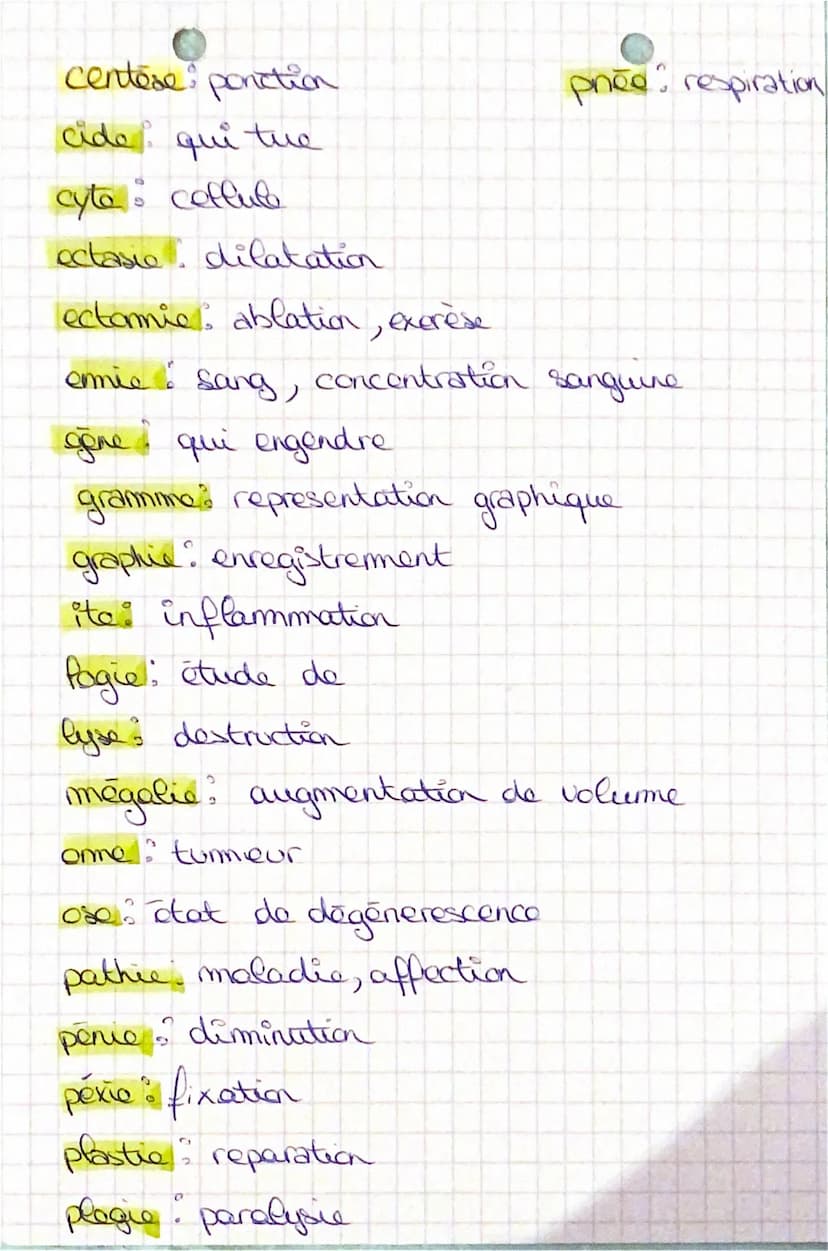 centèse : ponction
cide : qui tue
cyte : cellule
ectasie : dilatation
ectomie : ablation, exérèse
émie : sang, concentration sanguine
gène : qui engendre
gramme : représentation graphique
graphie : enregistrement
ite : inflammation
logie : étude de
lyse : destruction
mégalie : augmentation de volume
ome : tumeur
ose : état de dégénérescence
pathie : maladie, affection
pénie : diminution
péxie : fixation
plastie : réparation
plégie : paralysie
pnée : respiration